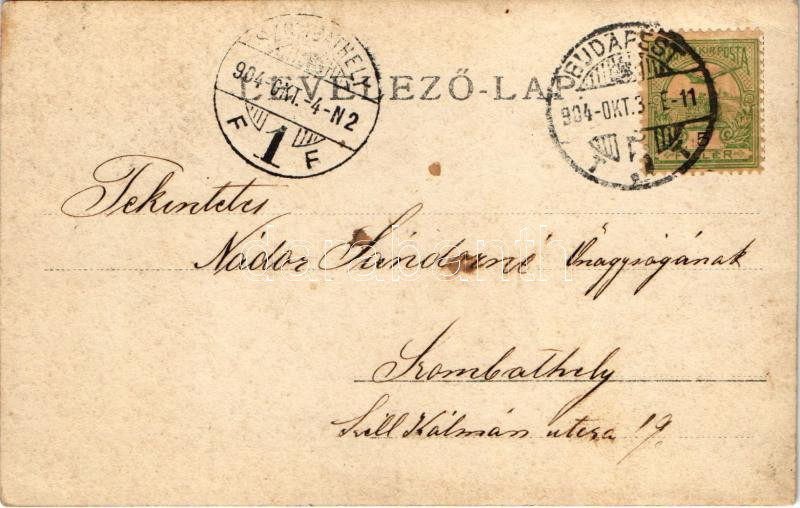 SZOMBATHELY
904-OKT.-4-N2
F 1 F
LEVELEZŐ-LAP
BUDAPEST
904-OKT.3 E-11
KIR. POSTA
5
Tekintetes
Nádor Sándorné Őnagyságának
Szombathely
Széll Kálmán utcza 19.
darabanth